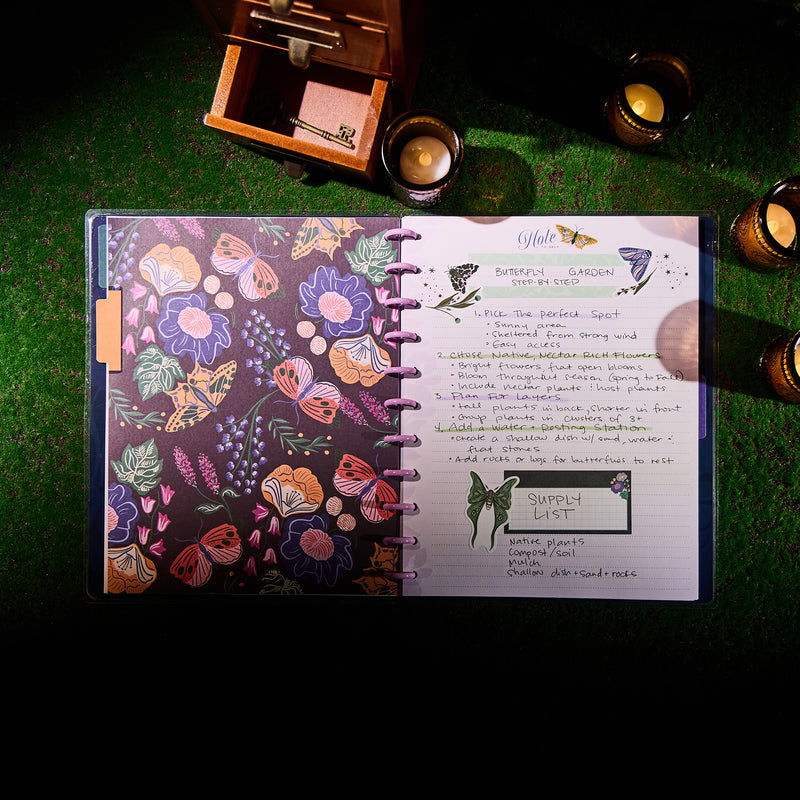 Note
TO SELF
BUTTERFLY GARDEN
STEP-BY-STEP
1. Pick The perfect Spot
• Sunny area
• Sheltered from strong wind
• Easy access
2. Chose Native, Nectar Rich Flowers
• Bright flowers, flat open blooms
• Bloom throughout season (spring to Fall)
• Include nectar plants & host plants
3. Plan for layers
• tall plants in back, shorter in front
• Group plants in clusters of 3+
4. Add a Water + Resting Station
• Create a shallow dish w/ sand, water &
flat stones
• Add rocks or logs for butterflies to rest
SUPPLY
LIST
Native plants
Compost/soil
Mulch
Shallow dish + sand + rocks